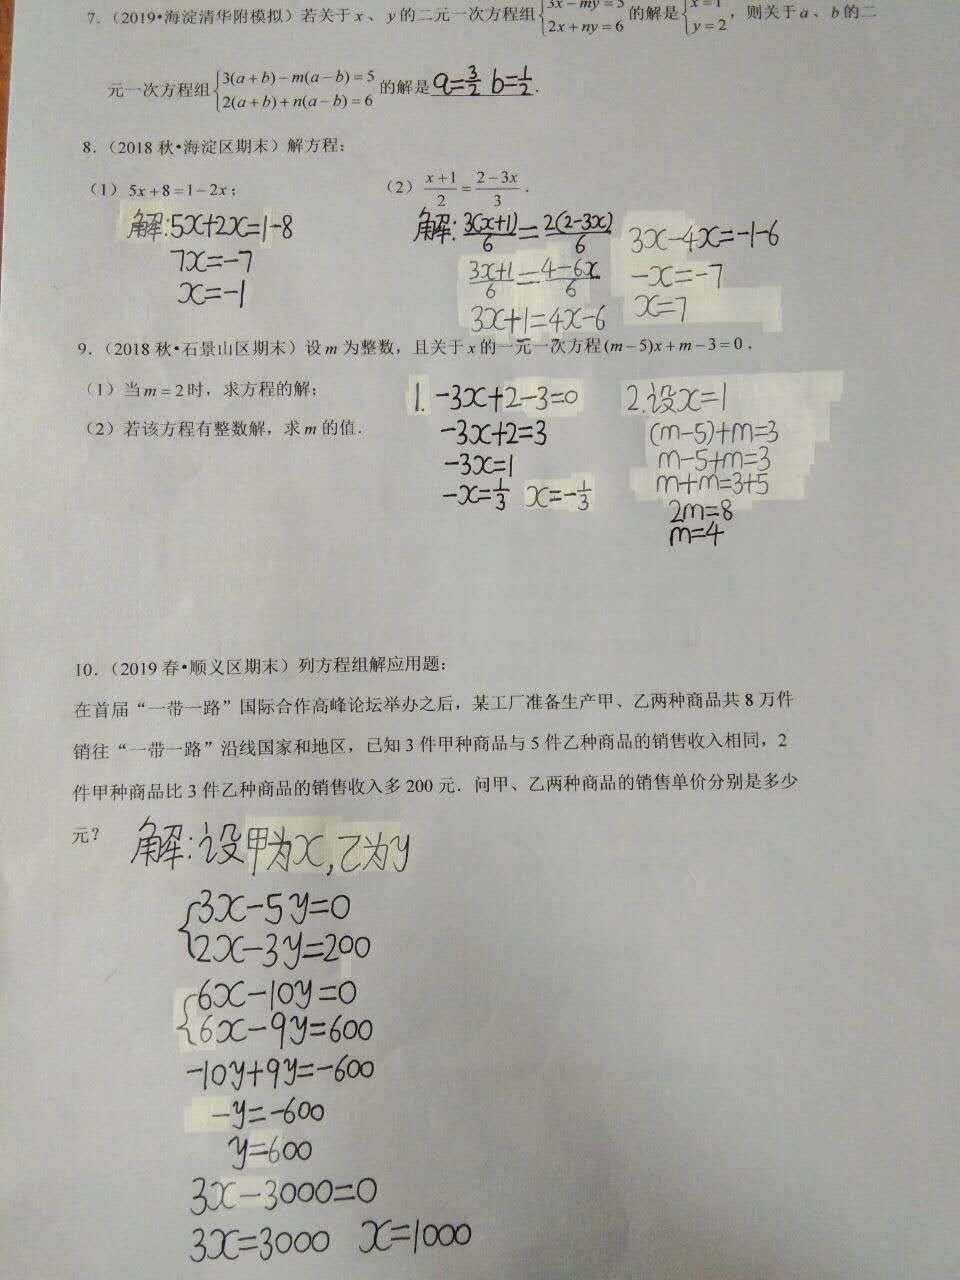 7.（2019•海淀清华附模拟）若关于 x 、 y 的二元一次方程组{3x − my = 5 2x + ny = 6 的解是{x = 1 y = 2，则关于 a 、 b 的二
元一次方程组{3(a + b) − m(a − b) = 5 2(a + b) + n(a − b) = 6 的解是 a=3/2 b=1/2 .
8.（2018 秋•海淀区期末）解方程：
（1） 5x + 8 = 1 − 2x ；
（2） (x + 1)/2 = (2 − 3x)/3 .
解:5x+2x=1-8
7x=-7
x=-1
解: 3(x+1)/6 = 2(2-3x)/6
3x+1/6 = 4-6x/6
3x+1=4x-6
3x-4x=-1-6
-x=-7
x=7
9.（2018 秋•石景山区期末）设 m 为整数，且关于 x 的一元一次方程 (m − 5)x + m − 3 = 0 .
（1）当 m = 2 时，求方程的解；
（2）若该方程有整数解，求 m 的值.
1. -3x+2-3=0
-3x+2=3
-3x=1
-x=1/3 x=-1/3
2.设x=1
(m-5)+m=3
m-5+m=3
m+m=3+5
2m=8
m=4
10.（2019 春•顺义区期末）列方程组解应用题：
在首届“一带一路”国际合作高峰论坛举办之后，某工厂准备生产甲、乙两种商品共 8 万件
销往“一带一路”沿线国家和地区，已知 3 件甲种商品与 5 件乙种商品的销售收入相同，2
件甲种商品比 3 件乙种商品的销售收入多 200 元．问甲、乙两种商品的销售单价分别是多少
元？
解:设甲为x,乙为y
{3x-5y=0
2x-3y=200
{6x-10y=0
6x-9y=600
-10y+9y=-600
-y=-600
y=600
3x-3000=0
3x=3000 x=1000